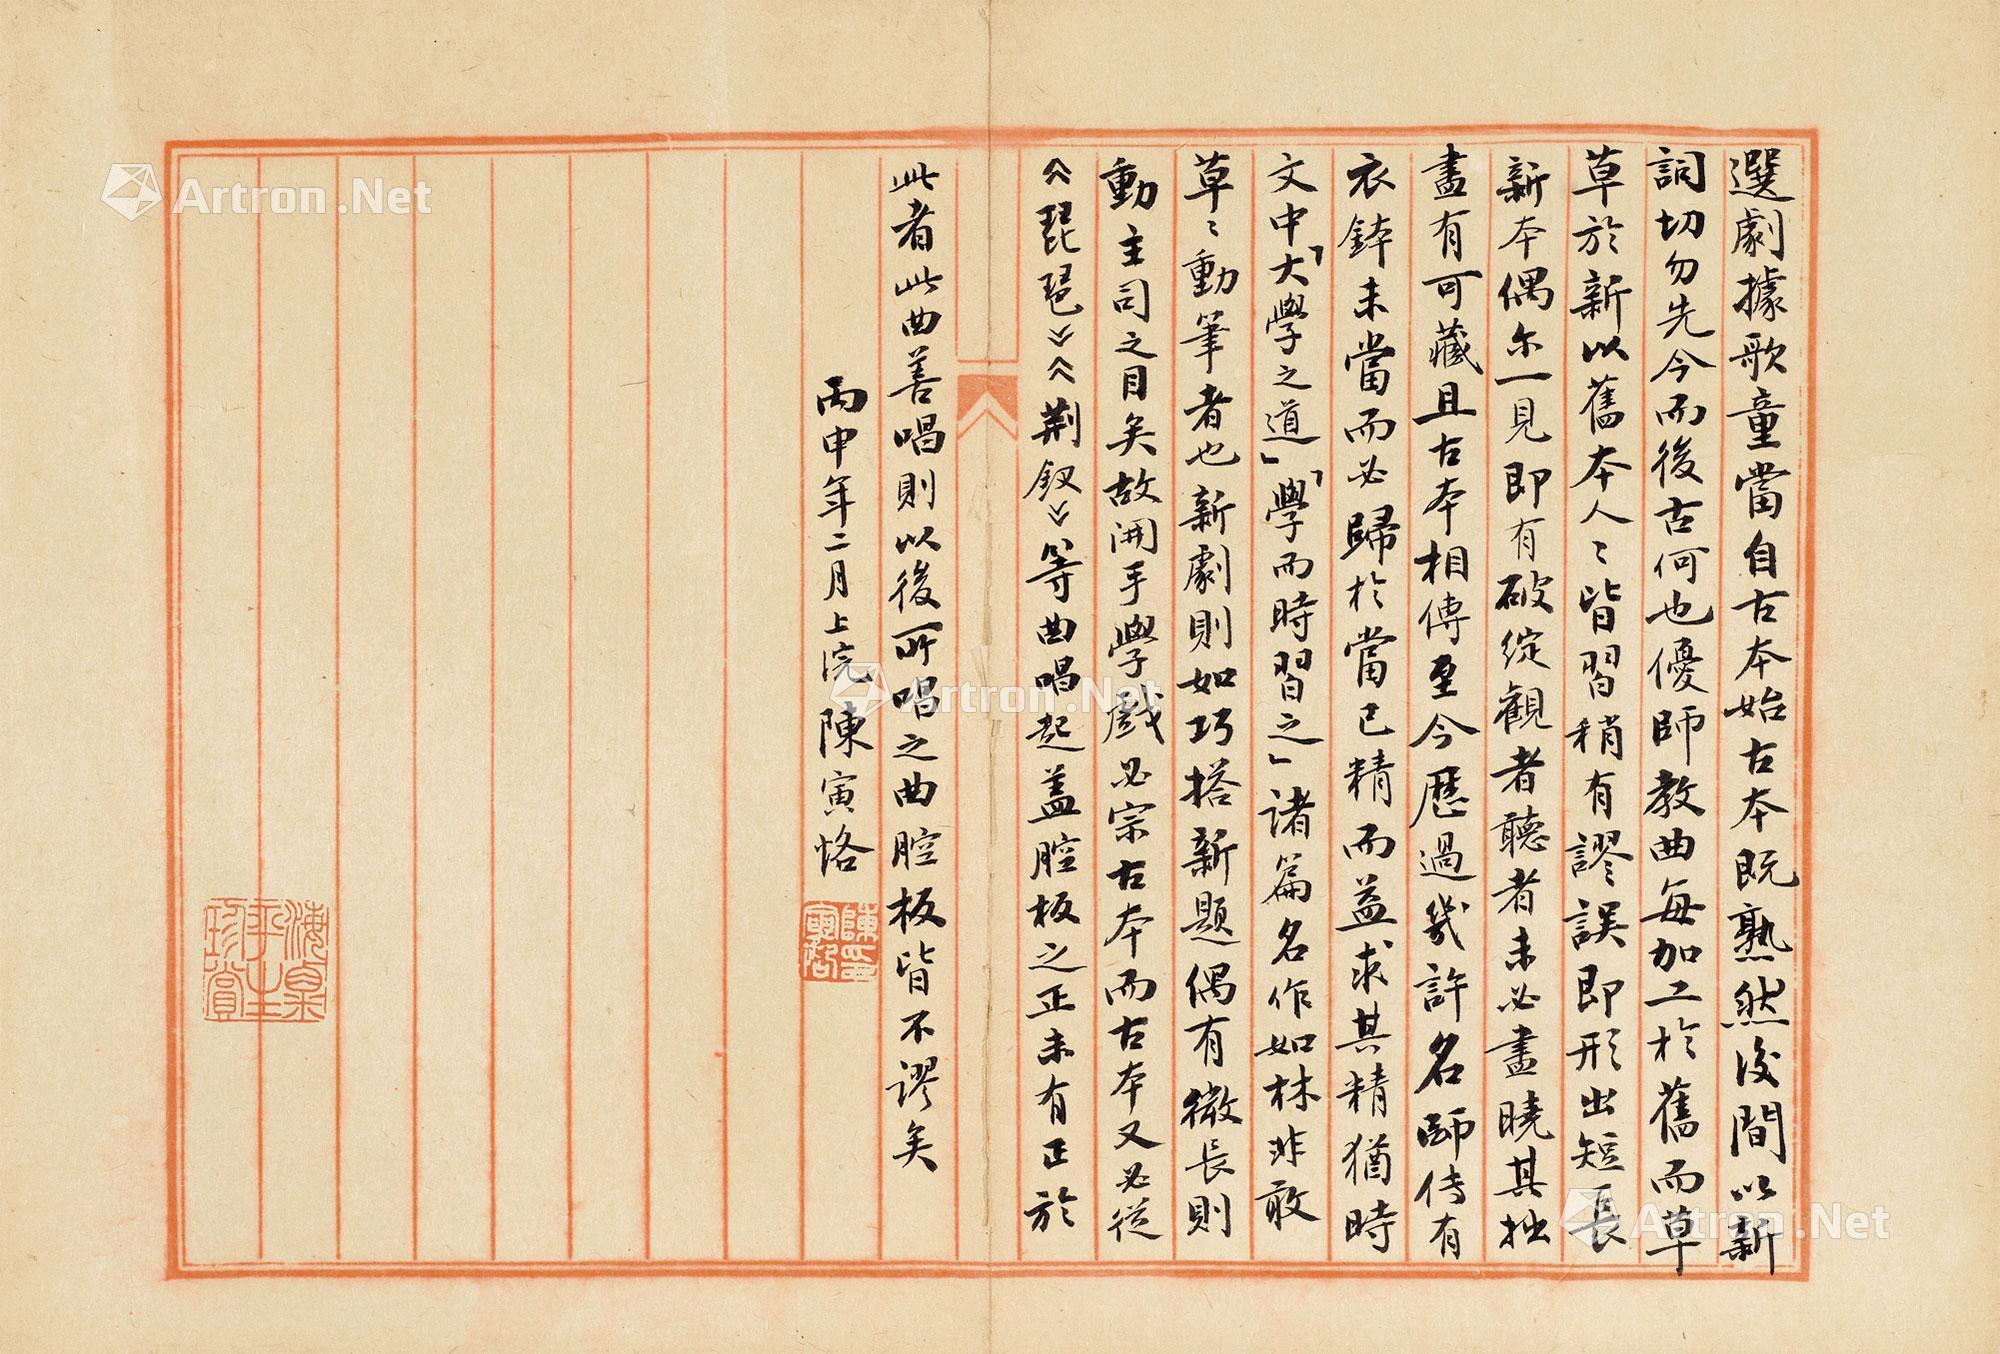 選劇據歌童當自古本始古本既熟然後間以新
詞切勿先今而後古何也優師教曲每加工於舊而草
草於新以舊本人〻皆習稍有謬誤即形出短長
新本偶尓一見即有破綻觀者聽者未必盡曉其拙
盡有可藏且古本相傳至今歷過幾許名師傳有
衣鉢未當而必歸於當已精而益求其精猶時
文中「大學之道」「學而時習之」諸篇名作如林非敢
草〻動筆者也新劇則如巧搭新題偶有微長則
動主司之目矣故開手學戲必宗古本而古本又必從
《琵琶》《荆釵》等曲唱起蓋腔板之正未有正於
此者此曲善唱則以後所唱之曲腔板皆不謬矣
丙申年二月上浣 陳寅恪
陳寅恪印
Artron.Net
Artron.Net
Artron.Net